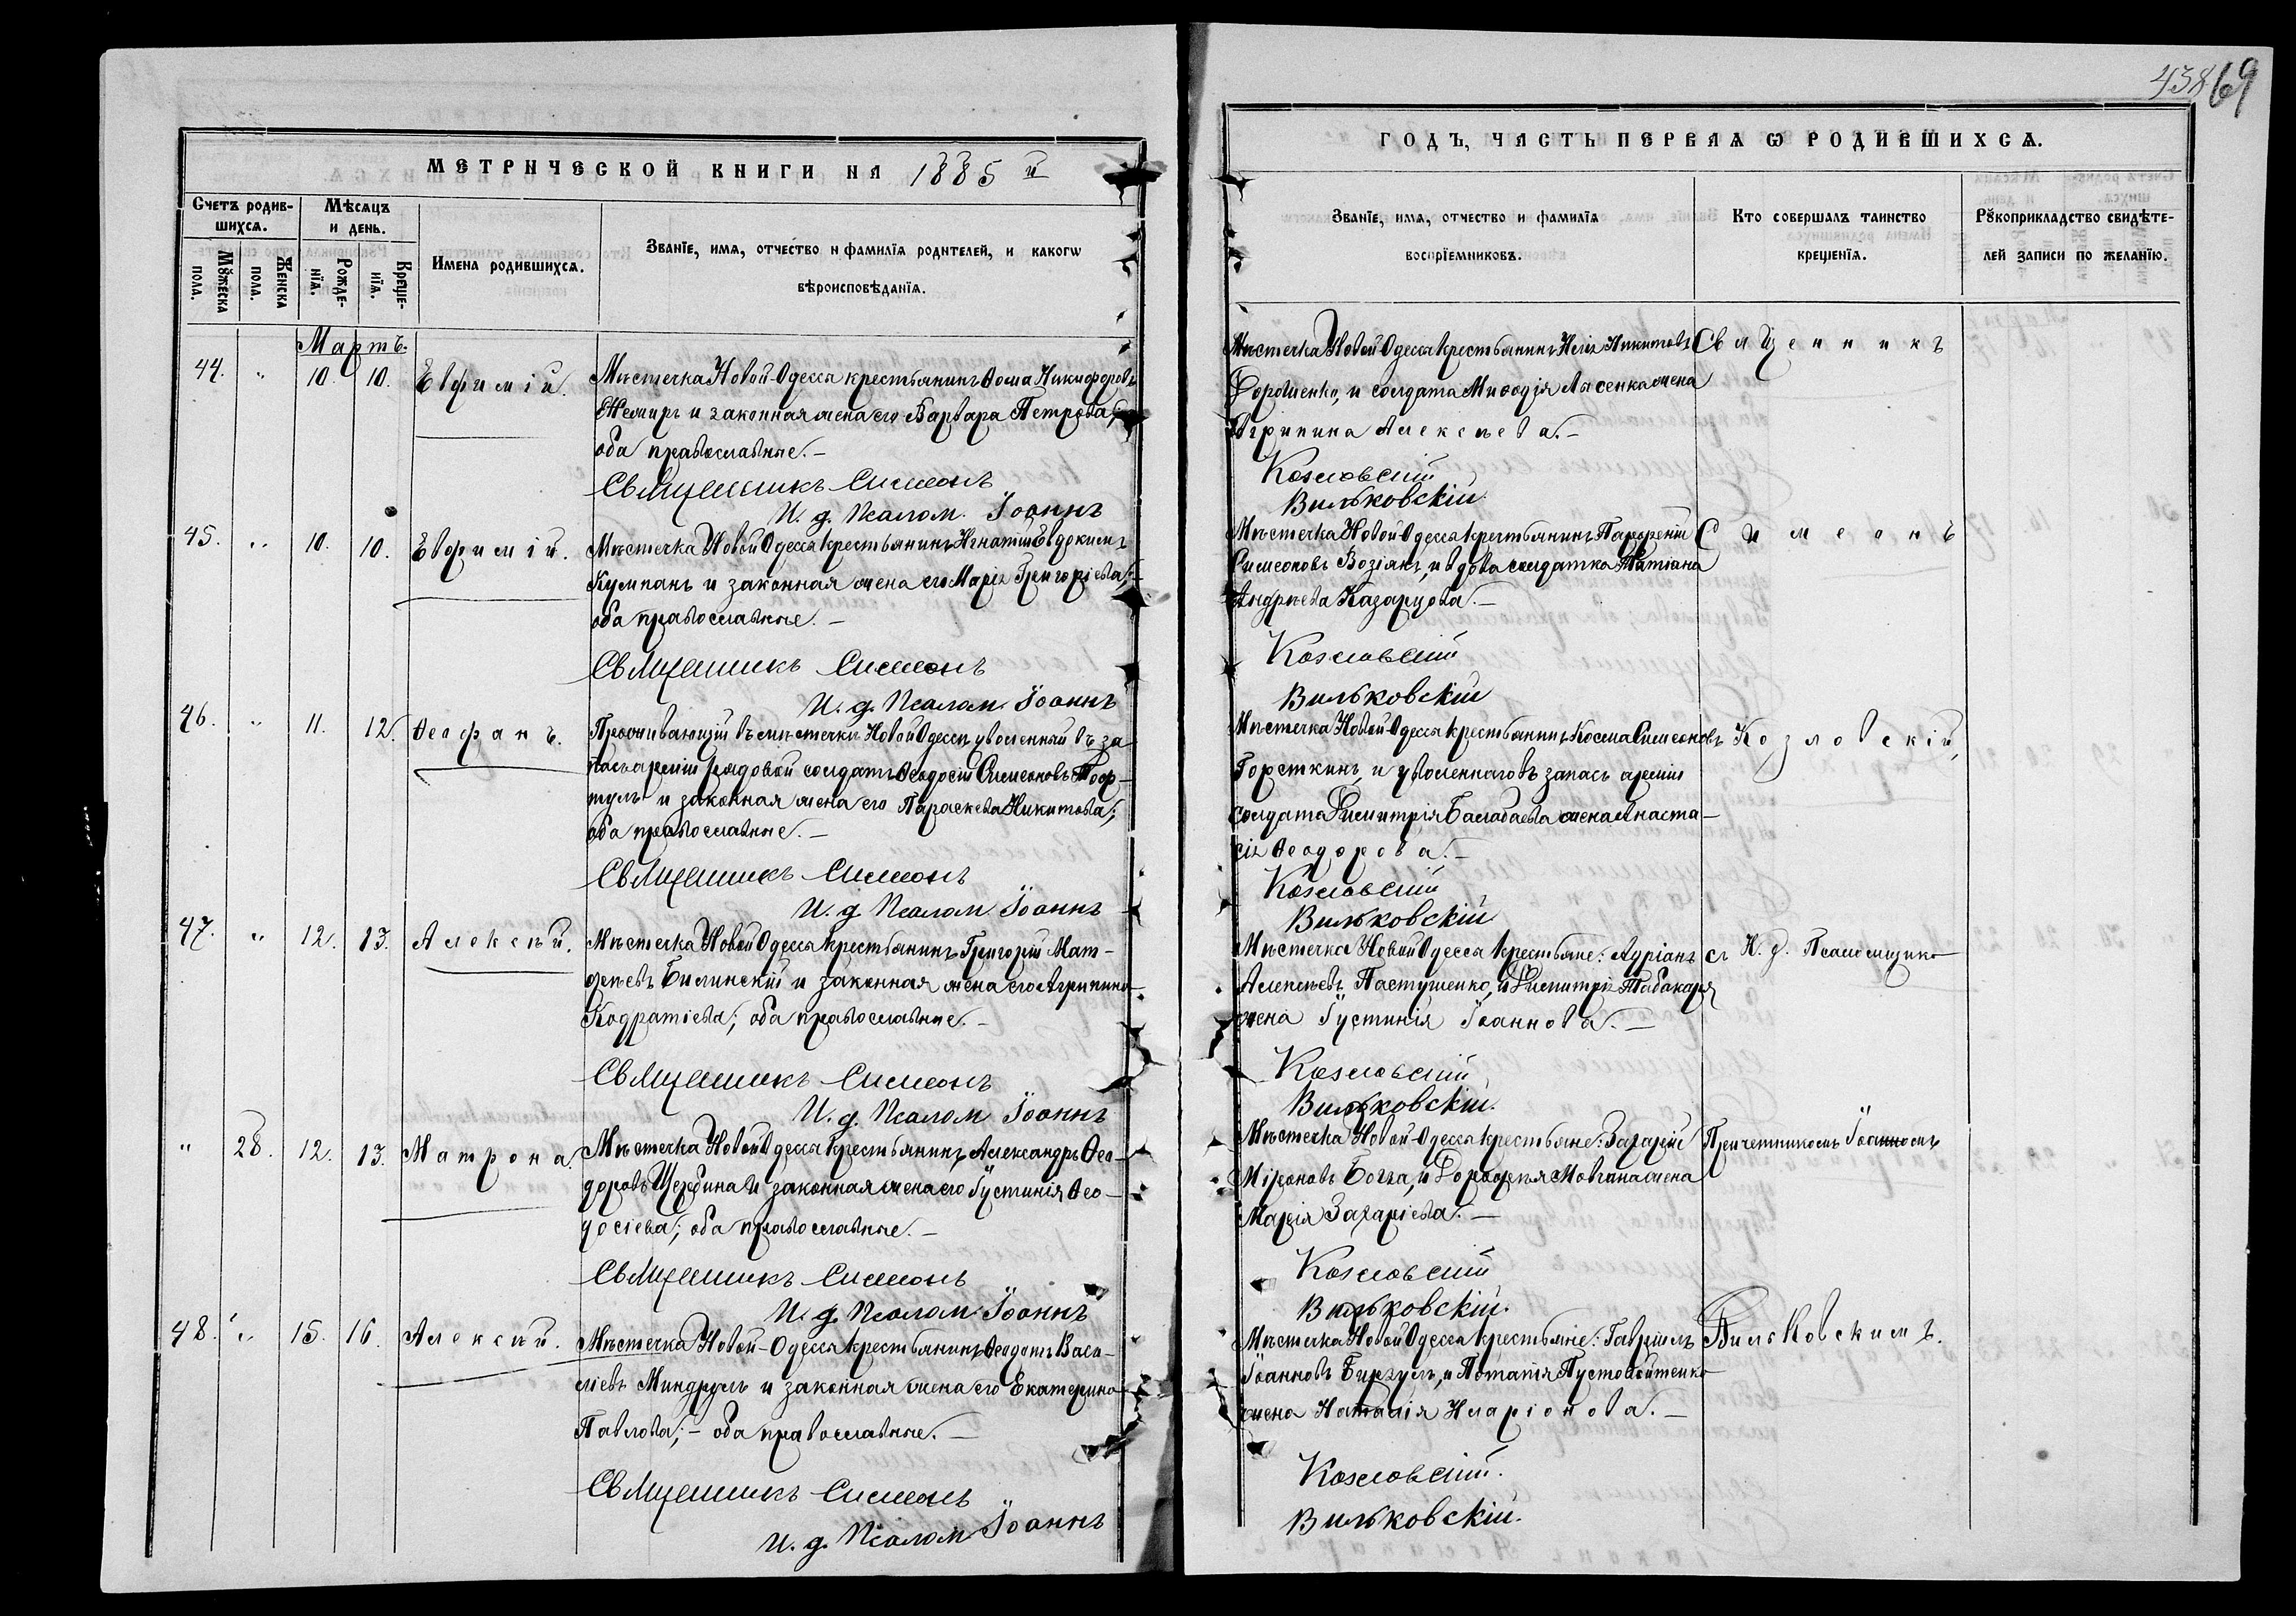 МЕТРИЧЕСКОЙ КНИГИ НА 1885 й
Счетъ родив-
шихся.
Мѣсяцъ
и день.
Мꙋжеска
пола.
Женска
пола.
Рожде-
нїя.
Креще-
нїя.
Имена родившихся.
Званїе, имя, отчество и фамилїя родителей, и какогѡ
вѣроисповѣданїя.
Мартъ.
44. „ 10. 10. Евфимій. Мѣстечка Новой-Одессы крестьянинъ Ѳома Никифоровъ
и законная жена его Варвара Петрова;
оба православные.–
Священникъ Симеонъ
И. д. Псалом. Іоаннъ
45. „ 10. 10. Евфимій. Мѣстечка Новой Одессы крестьянинъ Игнатій Евдокимъ
Кумпанъ и законная жена его Марія Григоріева;
оба православные.–
Священникъ Симеонъ
И. д. Псалом. Іоаннъ
46. „ 11. 12. Ѳеофанъ. Проживающій въ мѣстечкѣ Новой Одессѣ уволенный въ за
пасъ арміи рядовой солдатъ Ѳеодосій Симеоновъ
и законная жена его Параскева Никитова;
оба православные.–
Священникъ Симеонъ
И. д. Псалом. Іоаннъ
47. „ 12. 13. Алексѣй. Мѣстечка Новой Одессы крестьянинъ Григорій Мат-
фѣевъ Билинскій и законная жена его Агрипина
Кодратіева; оба православные.–
Священникъ Симеонъ
И. д. Псалом. Іоаннъ
„ 28. 12. 13. Матрона. Мѣстечка Новой Одессы крестьянинъ Александръ Ѳео-
доровъ Щербина и законная жена его Іустинія Ѳео-
досіева; оба православные.–
Священникъ Симеонъ
И. д. Псалом Іоаннъ
48. „ 15. 16. Алексѣй. Мѣстечка Новой-Одессы крестьянинъ Ѳеодотъ Васи-
ліевъ Миндрулъ и законная жена его Екатерина
Павлова;– оба православные.–
Священникъ Симеонъ
И. д. Псалом Іоаннъ
438 69
ГОДЪ, ЧАСТЬ ПЕРВАЯ Ѡ РОДИВШИХСЯ.
Званїе, имя, отчество и фамилїя
воспрїемниковъ.
Кто совершалъ таинство
крещенїя.
Рꙋкоприкладство свидѣте-
лей записи по желанїю.
Мѣстечка Новой Одессы крестьянинъ Илія Никитовъ Священникъ
Дорошенко, и солдата Меѳодія Лысенка жена
Агрипина Алексѣева.–
Козловскій
Вильковскій.
Мѣстечка Новой Одессы крестьянинъ Парфеній Симеонъ
Симеоновъ Возіянъ, и вдова солдатка Татіана
Андрѣева Казарцова.–
Козловскій
Вильковскій
Мѣстечка Новой Одессы крестьянинъ Косма Симеоновъ Козловскій,
Горсткинъ, и уволеннаго въ запасъ арміи
солдата Димитрія Балабаева жена Анаста-
сія Ѳеодорова.–
Козловскій
Вильковскій
Мѣстечка Новой Одессы крестьяне: Адріанъ съ И. д. Псаломщика
Алексѣевъ Пастушенко, и Димитрія Табакаря
жена Іустинія Іоаннова.–
Козловскій
Вильковскій.
Мѣстечка Новой-Одессы крестьяне: Захарій Причетникомъ Іоанномъ
Міроновъ Богза, и Дорофея Мовчана жена
Марія Захаріева.–
Козловскій
Вильковскій.
Мѣстечка Новой Одессы крестьяне: Гавріилъ Вильковскимъ.
Іоанновъ Биргулъ, и Потапія Пустовойтенко
жена Наталія Иларіонова.–
Козловскій.
Вильковскій.